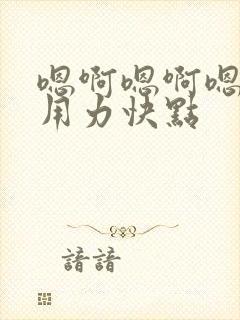 嗯啊嗯啊嗯
用力快點
諳諳